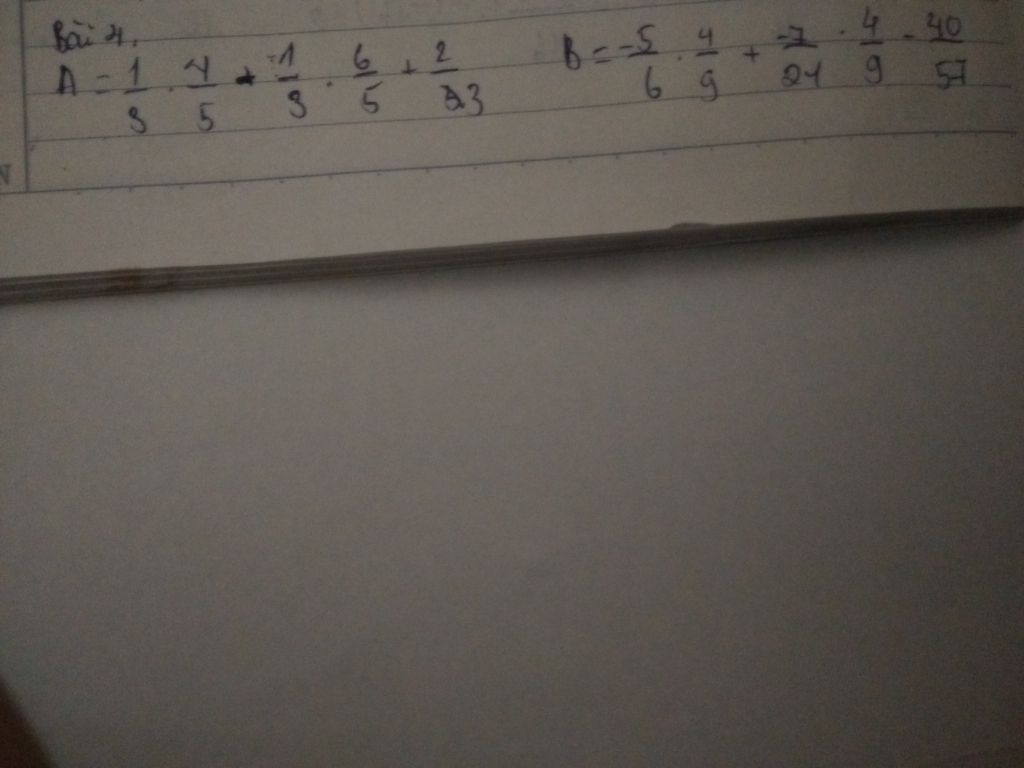 Bài 4.
A = 1/3 . 4/5 + -1/3 . 6/5 + 2/3 B = -5/6 . 4/9 + -7/21 . 4/9 - 40/57